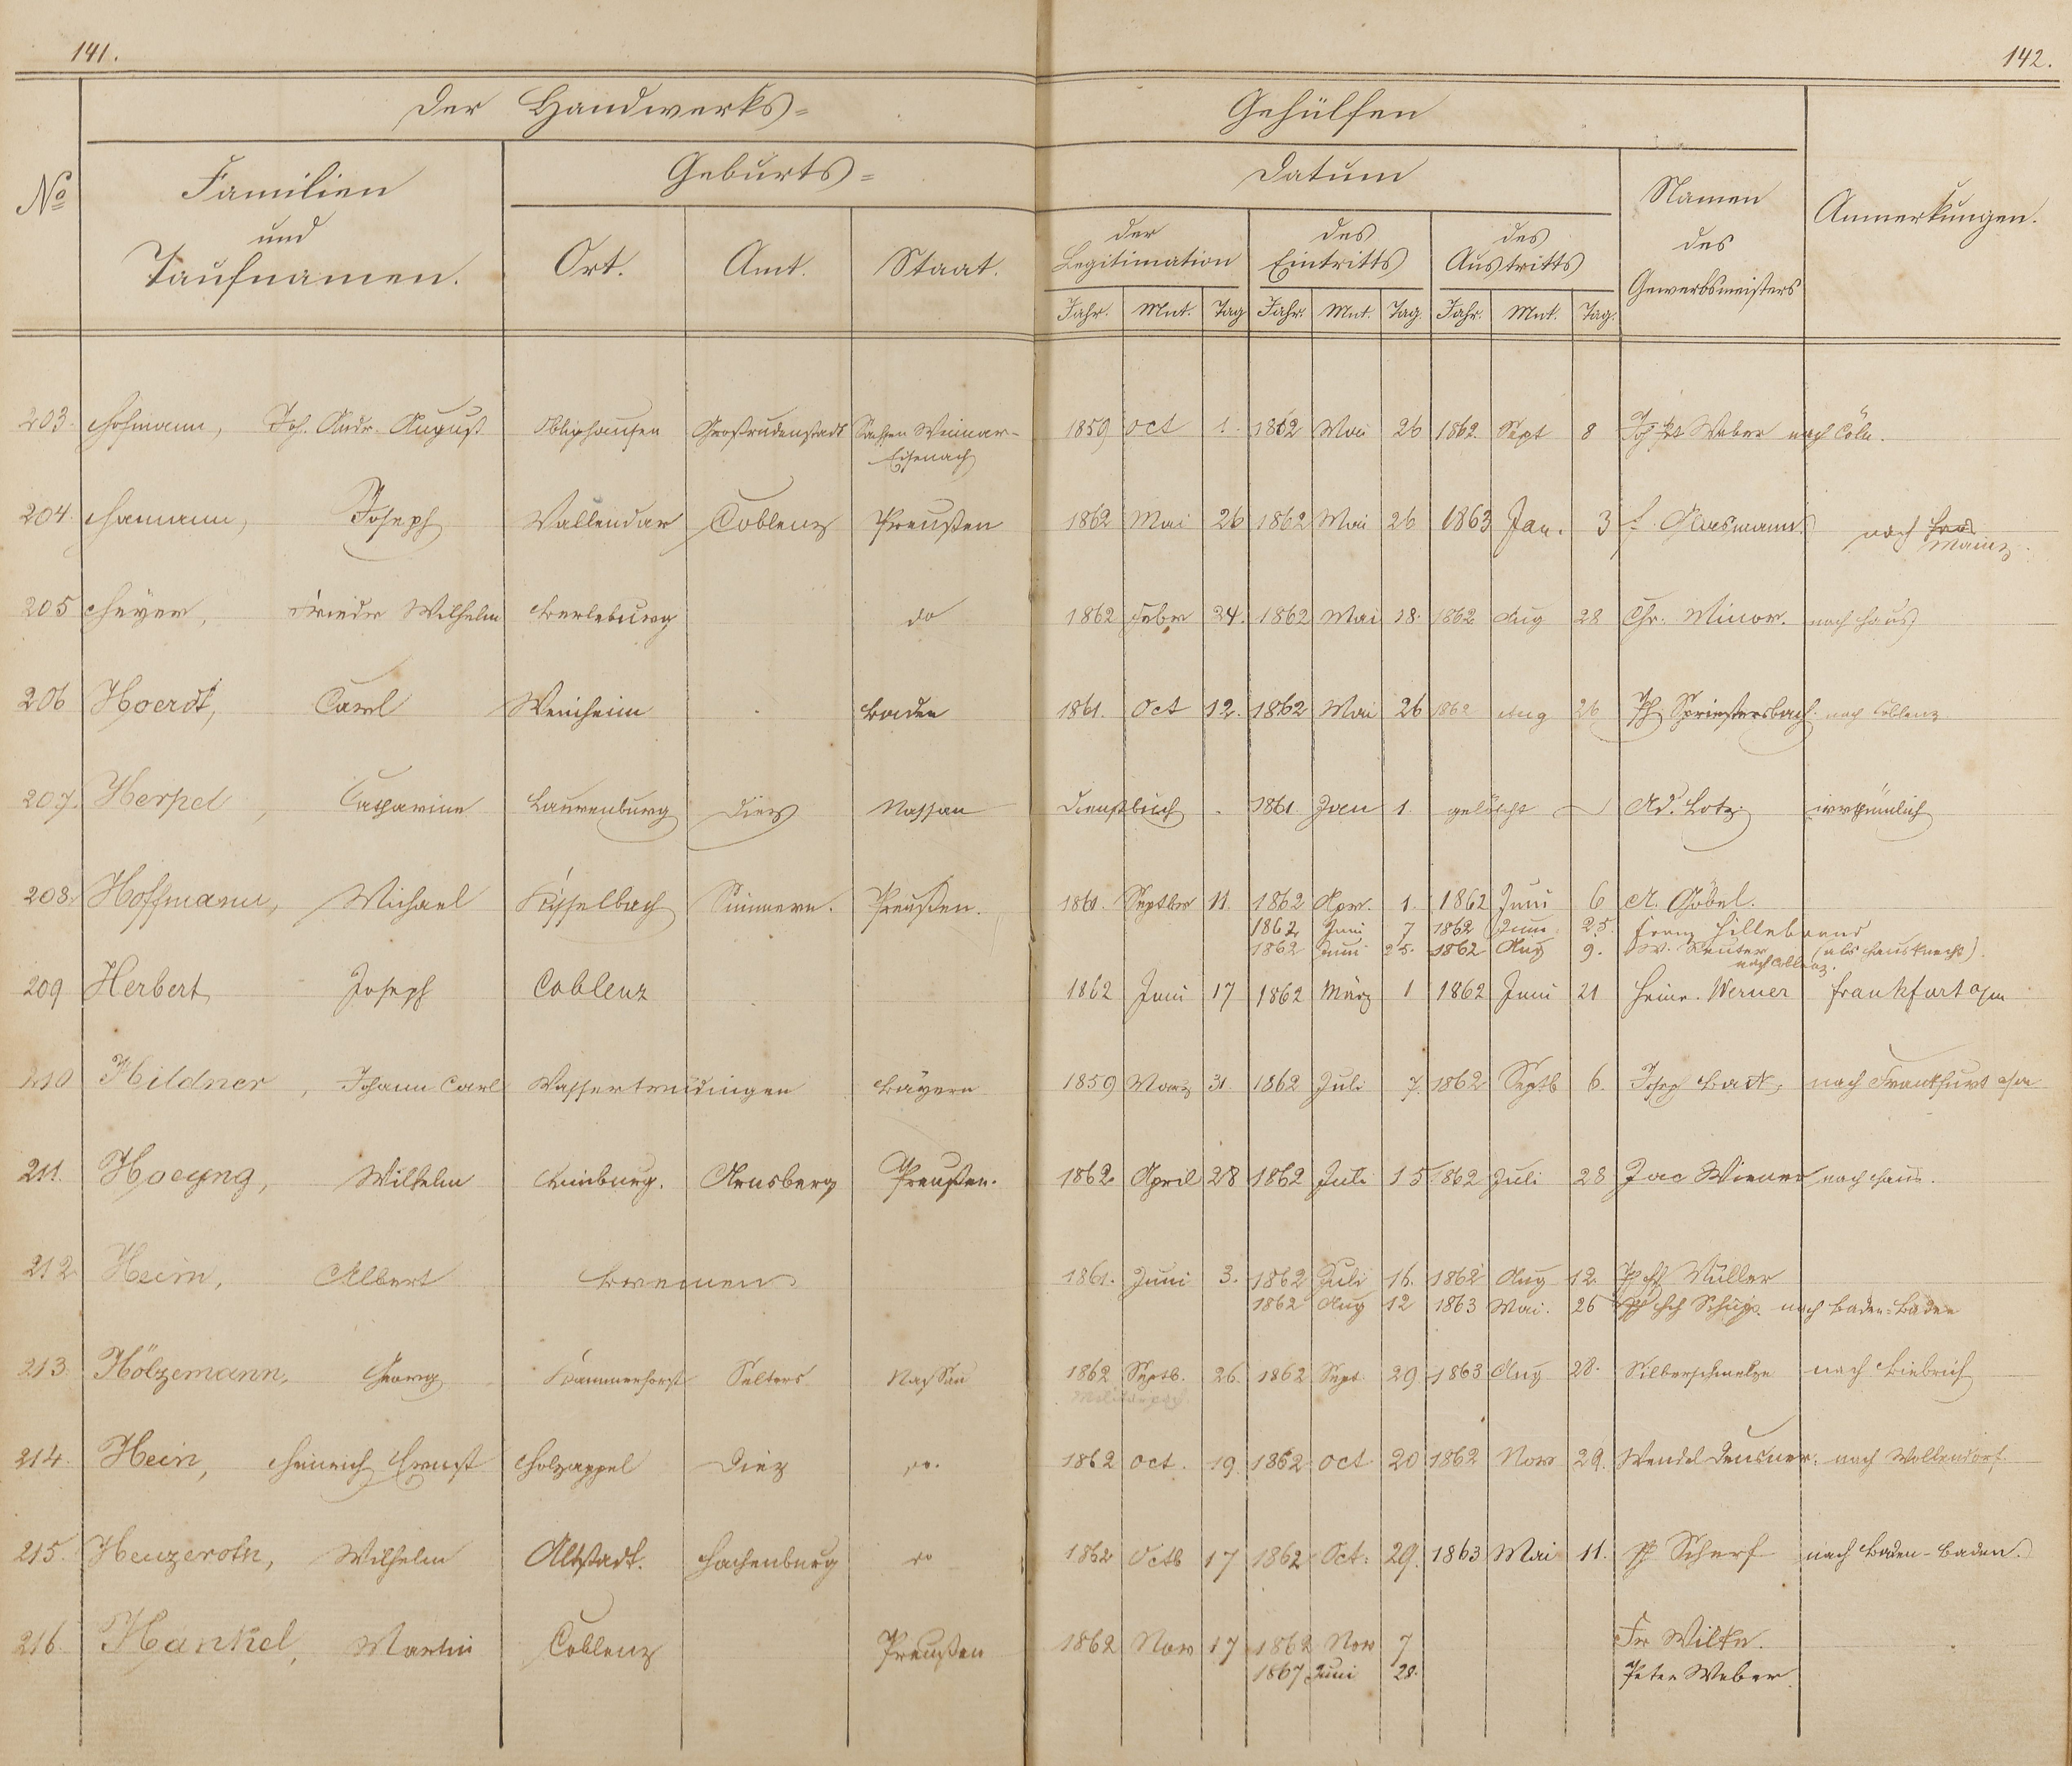 141.
142.
Der Handwerks=
Gehülfen
No
Familien
und
Taufnamen.
Geburts=
Ort.
Amt.
Staat.
Datum
der
Legitimation
des
Eintritts
des
Austritts
Jahr. Mnt. Tag Jahr. Mnt. Tag. Jahr. Mnt. Tag.
Namen
des
Gewerbsmeisters
Anmerkungen.
203. Hofmann, Joh. Andr. August Großrudenstadt Sachsen Weimar- 1859 Oct 1. 1862 Mai 26 1862. Sept 8 Weber nach Cöln.
Eisenach
204. Hamann, Joseph Vallendar Coblenz Preußen 1862 Mai 26 1862 Mai 26 1863 Jan. 3 nach
Mainz.
205 Heyer, Friedr Wilhelm Berleburg do 1862 Febr 24. 1862 Mai 18. 1862 Aug 28 Chr. Minor. nach Haus
206 Hoerdt, Carl Weinheim Baden 1861. Oct 12. 1862 Mai 26 1862 Aug 26 Ph Spriestersbach. nach Coblenz
207. Herpel, Catharine Laurenburg Diez Nassau Dienstbuch 1861. Jan 1. gelöscht Ad. Lotz irrthümlich
208. Hoffmann, Michael Kisselbach Simmern. Preußen. 1861. Septbr 11. 1862 Apr. 1. 1862 Juni 6 A. Göbel.
1862 Juni 7 1862 Juni 25. Franz Hillebrand
1862 Juni 25. 1862 Aug 9. W. Reuter (als Hausknecht).
nach Coblenz.
209 Herbert, Joseph Coblenz 1862 Juni 17 1862 März 1 1862 Juni 21 Heinr. Werner Frankfurt a/m
210 Hildner, Johann Carl Wassertrüdingen Bayern 1859 März 31. 1862 Juli 7. 1862 Septb 6. Joseph nach Frankfurt a/m
211. Hoeyng, Wilhelm Arnsberg Preußen. 1862. April 28 1862 Juli 15 1862 Juli 28 Jac Wiener nach Haus.
212 Heim, Albert Bremen 1861. Juni 3. 1862 Juli 16. 1862 Aug 12. Müller
1862 Aug 12 1863 Mai. 26 nach Baden-Baden
213. Hölzemann, Georg Kammerforst Selters Nassau 1862 Septb. 26. 1862 Sept. 29. 1863 Aug 28. Silberschmelze nach Biebrich
214. Hein, Heinrich Ernst Holzappel Diez do. 1862 Oct. 19. 1862 Oct 20 1862 Nov 29. Wendel Deusner. nach Wollendorf.
215. Heuzeroth, Wilhelm Altstadt. Hachenburg do 1862 Octb 17 1862 Oct: 29. 1863 Mai 11. Ph Scherf nach Baden-Baden.
216. Hankel, Martin Coblenz Preußen 1862 Nov 17 1862 Nov 7 Fr Wilh.
1867 Juni 28. Peter Weber.